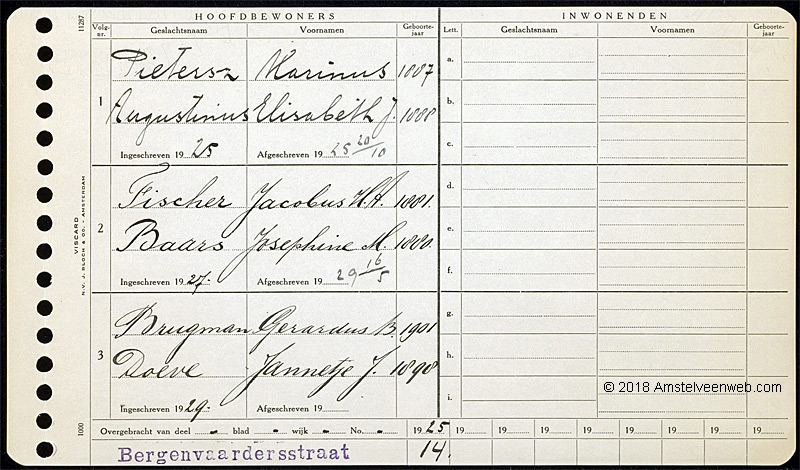 HOOFDBEWONERS INWONENDEN
Volg-nr. Geslachtsnaam Voornamen Geboorte-jaar Lett. Geslachtsnaam Voornamen Geboorte-jaar
11287
1
Pietersz Marinus 1887
Augustinus Elisabeth J. 1888
Ingeschreven 1925 Afgeschreven 1925 20/10
a.
b.
c.
2
Fischer Jacobus H.A. 1881.
Baars Josephine M. 1880.
Ingeschreven 1927. Afgeschreven 19 29 16/5
d.
e.
f.
VISCARD
N.V. J. BLOCH & CO. - AMSTERDAM
3
Brugman Gerardus B. 1901
Doeve Jannetje J. 1898
Ingeschreven 1929. Afgeschreven 19
g.
h.
i.
© 2018 Amstelveenweb.com
1000
Overgebracht van deel - blad - wijk - No. - 1925 19 19 19 19 19 19 19 19
Bergenvaardersstraat 14.